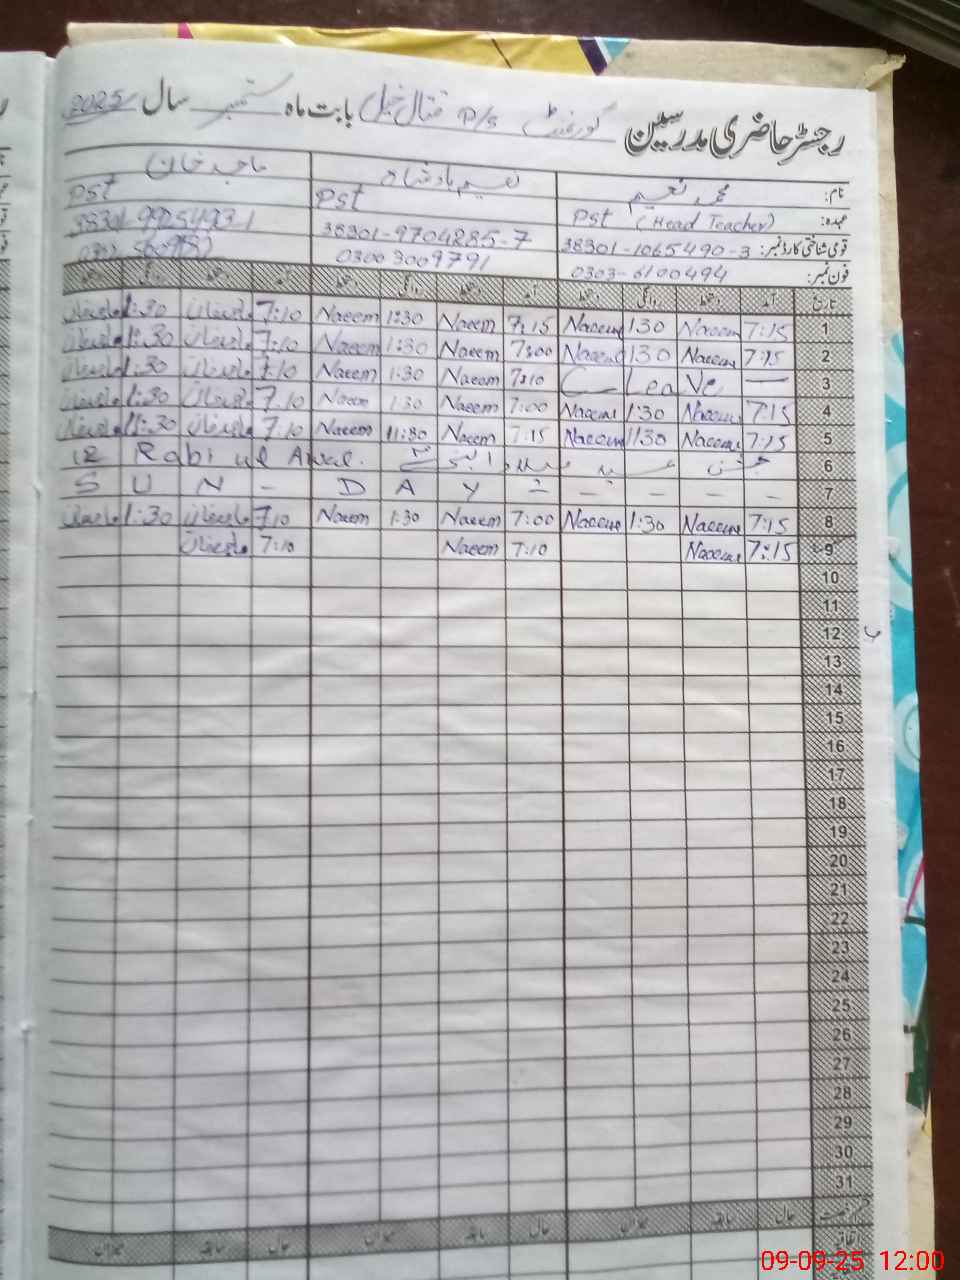 رجسٹر حاضری مدرسین گورنمنٹ P/S قتال خیل بابت ماہ ستمبر سال 2025
نام: محمد نعیم نعیم بادشاہ ماجد خان
عہدہ: Pst (Head Teacher) Pst Pst
قومی شناختی کارڈ نمبر: 38301-1065490-3 38301-9704285-7 38301-9925493-1
فون نمبر: 0303-6100494 03003009791
تاریخ آمد دستخط روانگی دستخط آمد دستخط روانگی دستخط آمد دستخط روانگی دستخط
1 7:15 Naeem 1:30 Naeem 7:15 Naeem 1:30 Naeem 7:10 ماجدخان 1:30 ماجدخان
2 7:15 Naeem 1:30 Naeem 7:00 Naeem 1:30 Naeem 7:10 ماجدخان 1:30 ماجدخان
3 — C Leave 7:10 Naeem 1:30 Naeem 7:10 ماجدخان 1:30 ماجدخان
4 7:15 Naeem 1:30 Naeem 7:00 Naeem 1:30 Naeem 7:10 ماجدخان 1:30 ماجدخان
5 7:15 Naeem 11:30 Naeem 7:15 Naeem 11:30 Naeem 7:10 ماجدخان 11:30 ماجدخان
6 جشن عید میلاد النبی 12 Rabi ul Awal.
7 S U N - D A Y - - - - -
8 7:15 Naeem 1:30 Naeem 7:00 Naeem 1:30 Naeem 7:10 ماجدخان 1:30 ماجدخان
9 7:15 Naeem 7:10 Naeem 7:10 ماجدخان
10
11
12
13
14
15
16
17
18
19
20
21
22
23
24
25
26
27
28
29
30
31
حال سابقہ میزان حال سابقہ میزان حال سابقہ میزان
اتفاقیہ
09-09-25 12:00